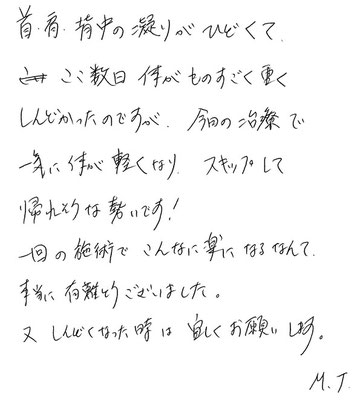 首・肩・背中の凝りがひどくて、
ここ数日 体がものすごく重く
しんどかったのですが、今回の治療で
一気に体が軽くなり、スキップして
帰れそうな勢いです!
一回の施術でこんなに楽になるなんて、
本当に有難とうございました。
又しんどくなった時は宜しくお願いします。
M.T.